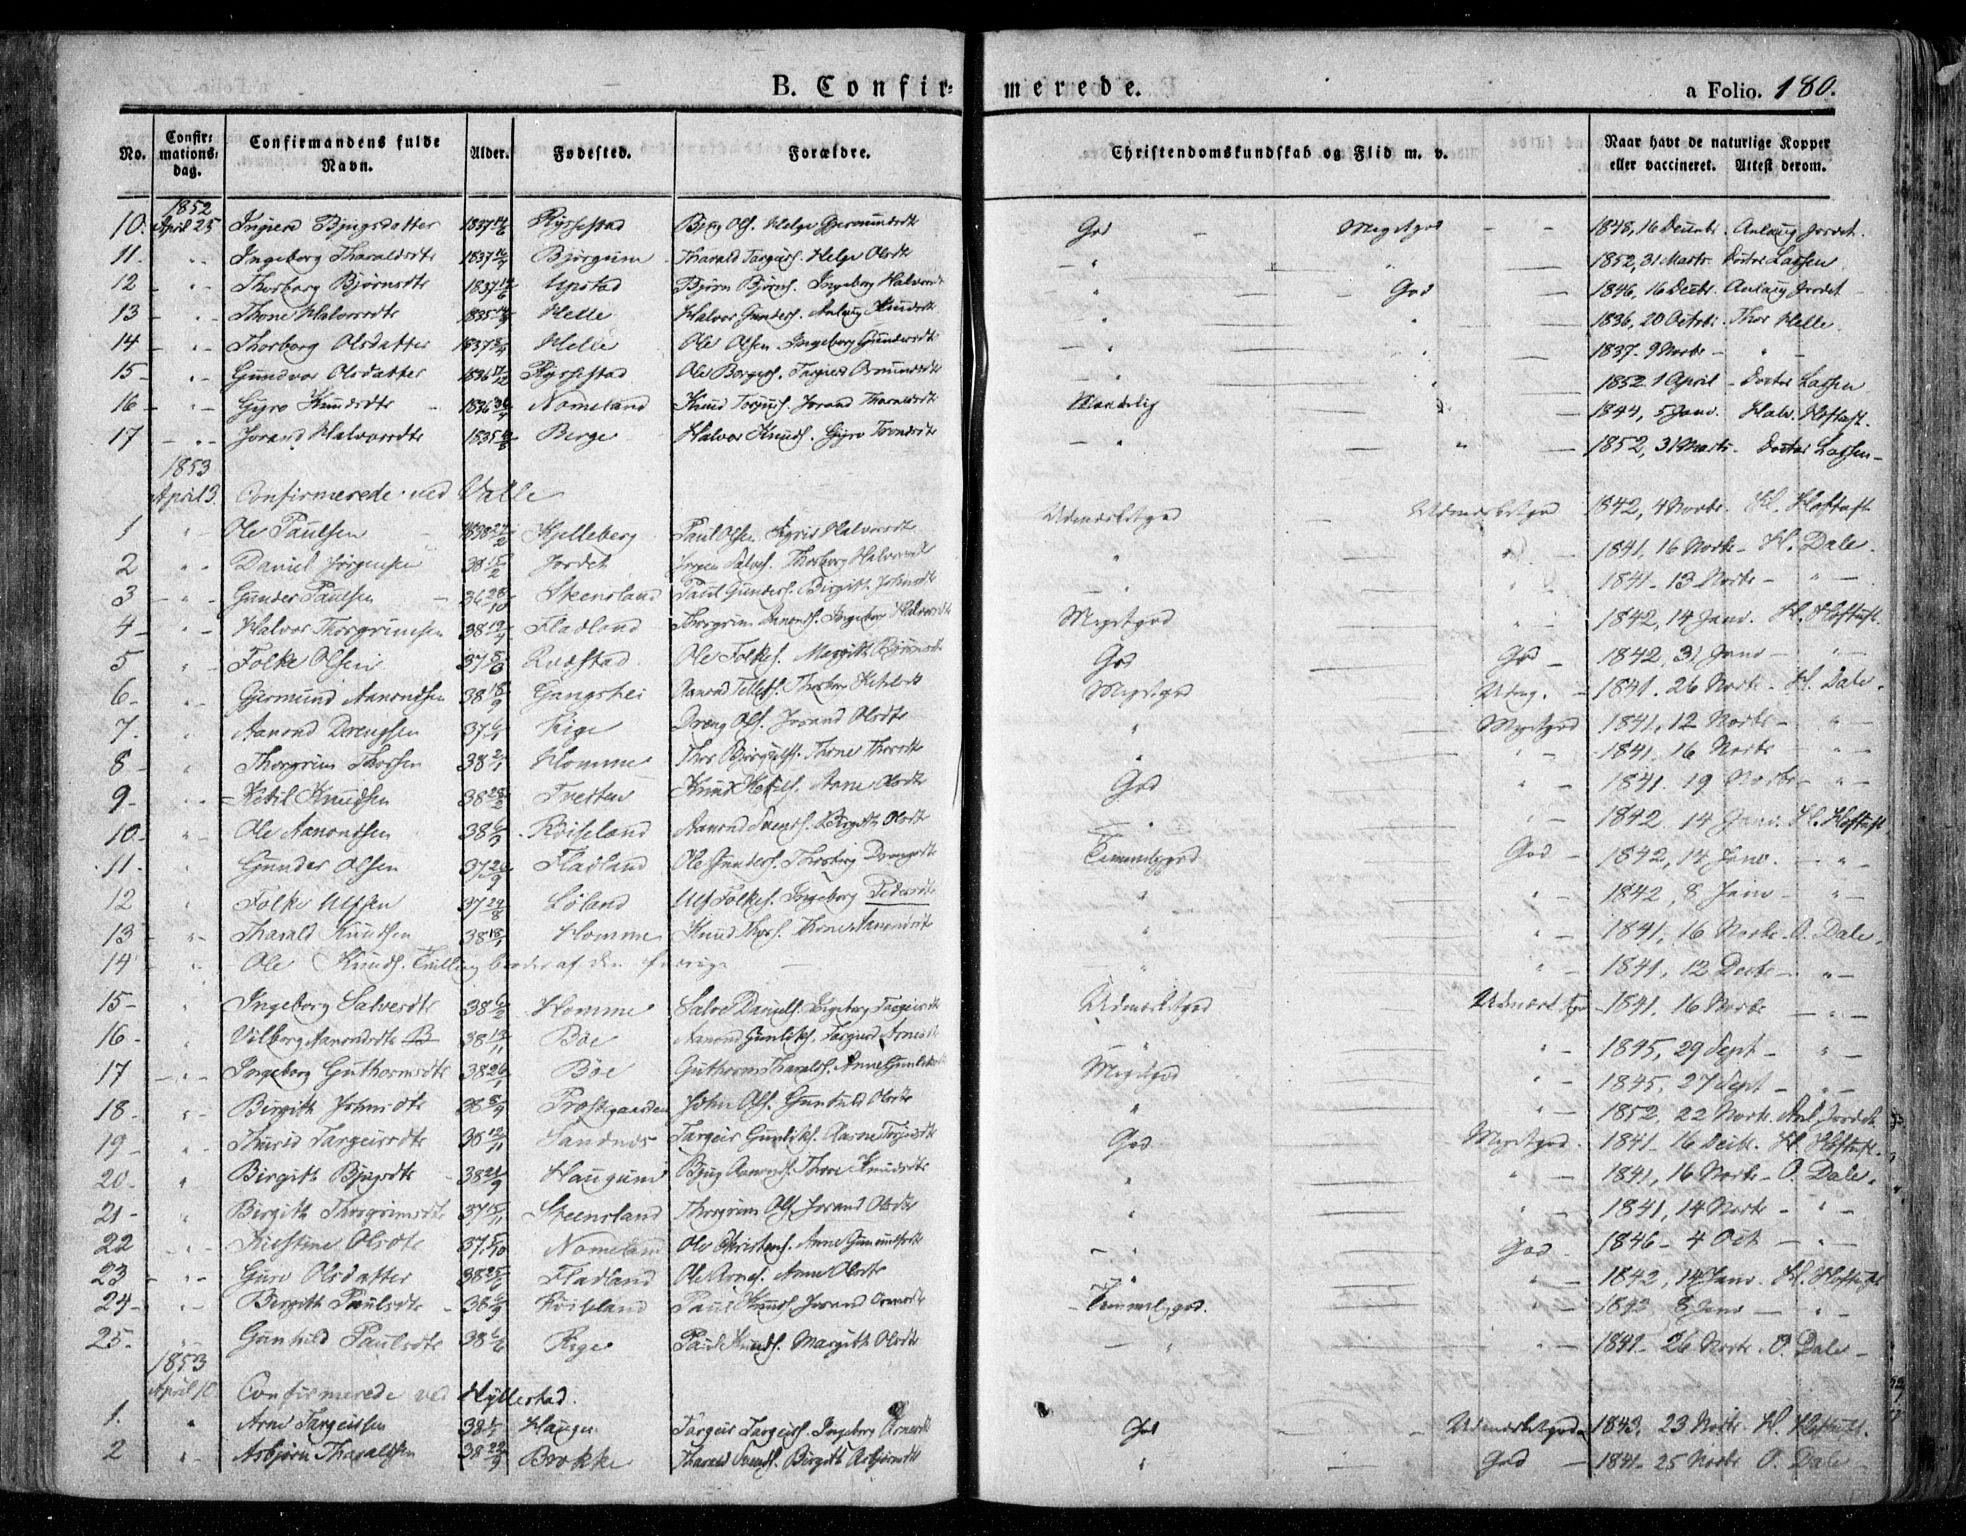 B. Confirmerede. a Folio. 180.
No. Confirmationsdag. Confirmandens fulde Navn. Alder. Fødested. Forældre. Christendomskundskab og Flid m. v. Naar havt de naturlige Kopper eller vaccineret. Attest derom.
1852
10. April 25 Bjugsdatter 1837 Ryssestad Bjug Ols. Helge Gjermundsdt God - Megetgod - - 1848, 16 Decbr. Anlaug Jordet.
11. Ingeborg Tharaldsdtr 1837 Bjørgum Tharald Targeirs. Helge Olsdt 1852, 31 Marts. Doctor Lassen
12 Thorborg Bjørnsdtr 1837 Upstad Bjørn Bjørns. Ingeborg Halvorsdt God 1846, 16 Decbr. Anlaug Jordet
13 Thone Halvorsdtr 1835 Helle Halvor Gunders. Anlaug Knudsdt 1836, 20 Octobr. Thor Helle.
14 Thorborg Olsdatter 1837 Helle Ole Olsen Ingeborg Gundersdt 1837- 9 Novbr -
15 Gundvor Olsdatter 1836 Ryssestad Ole Borgers. Targierd Osmundsdt 1852 1 April - Doctor Lassen
16 Gyro Knudsdtr 1836 Nomeland Knud Torjus. Jorand Tharaldsdt Maadelig 1844, 5 Janv. Halv. Hoftuft.
17 Jorand Halvorsdtr 1835 Berge Halvor Knuds. Gyro Tovesdt 1852, 31 Marts Doctor Lassen -
1853
April 3. Confirmerede ved Valle
1 Ole Paulsen 1838 Kjelleberg Paul Olsen Sigris Halvorsdt Udmærketgod - Udmærketgod 1842, 4 Novbr. H. Hoftuft
2 Daniel Jørgensen 38 Jordet Jørgen Salves. Thorborg Halvorsdt 1841, 16 Novbr - H. Dale.
3 Gunder Paulsen 36 28/10 Steensland Paul Gunders. Birgith Johnsdt 1841 - 13 Novbr -
4 Halvor Thorgrimsen 38 Fladland Thorgrim Aanonds. Ingeborg Halvorsdt Megetgod 1842, 14 Janv. H. Hoftuft.
5 Folke Olsen 37 Ole Folkes. Margith Bjørnsdt God God 1842, 31 Janv -
6 Gjermund Aanondsen 38 18/9 Aanond Tellefs. Thorbor Ketelsdt Megetgod Udmg. 1841. 26 Novbr - H. Dale.
7. Aanond Drengsen 37 Rige Dreng Ols. Jorand Olsdtr Megetgod 1841, 12 Novbr -
8 Thorgrim Thorsen 38 Homme Thor Bjørgulfs. Thone Thorsdt 1841. 16 Novbr
9 Ketil Knudsen 38 Tveiten Knud Ketils. Anne Olsdt God 1841. 19 Novbr -
10 Ole Aanondsen 38 Røiseland Aanond Svends. Birgith Olsdt 1842 14 Janv. H. Hoftuft
11. Gunder Olsen 37 Fladland Ole Gunders. Thorborg Drengsdt Temmeliggod God 1842, 14 Janv.
12 Folke Ulfsen 37 29/8 Løland Ulf Folkes. Ingeborg Pedersdt 1842, 8 Janv
13 Tharald Knudsen 38 Homme Knud Thors. Thone Aanondsdt 1841, 16 Novbr. O. Dale.
14 Ole Knuds. Tvillingbroder af den forrige 1841, 12 Decbr
15 Ingeborg Salvesdtr 38 Homme Salve Daniels. Ingeborg Targeirsdt Udmærketgod Udmærketgod 1841. 16 Novbr
16 Vilborg Aanondsdtr 38 Bøe Aanond Gunliks. Targierd Arnesdt 1845, 29 Sept -
17 Ingeborg Guthormsdtr 38 Bøe Guthorm Tharalds. Anne Gunliksdt Megetgod 1845, 27 Sept -
18 Birgith Johnsdtr 38 Prostgaarden John Ols. Gunhild Olsdtr 1852, 22 Novbr. Anl. Jordet.
19 Thurid Targeirsdtr 38 Sandnes Targeir Gunliks. Aasne Targeirsdt God Megetgod. 1841 - 16 Decbr. H. Hoftuft.
20 Birgith Bjugsdtr 38 Haugum Bjug Aanonds. Thore Knudsdtr 1841, 16 Novbr - O. Dale.
21 Birgith Thorgrimsdtr 37 Steensland Thorgrim Ols. Jorand Olsdt 1841, 14 Novbr -
22 Kirstine Olsdtr 37 Nomeland Ole Christens. Anne Gunnulfsdt God 1846 - 4 Oct
23 Guro Olsdatter 38 Fladland Ole Arnes. Anne Olsdtr 1842, 14 Janv. H. Hoftuft
24 Birgith Paulsdtr 38 Røiseland Paul Knuds. Jorand Osmsdtr Temmeliggod. 1842 8 Janv
25. Gunhild Paulsdtr 38 Rige Paul Knuds. Margith Olsdtr 1841 - 26 Novbr. O. Dale -
1853
April 10 Confirmerede ved Hyllestad.
1. Arne Targeirsen 38 Haugen Targeir Targeirs. Ingeborg Arnesdt God Udmærketgod 1843, 23 Novbr. H. Hoftuft.
2 Asbjørn Tharaldsen 38 Brokke Tharald Svends. Birgith Asbjørnsdt God 1841 - 25 Novbr O. Dale